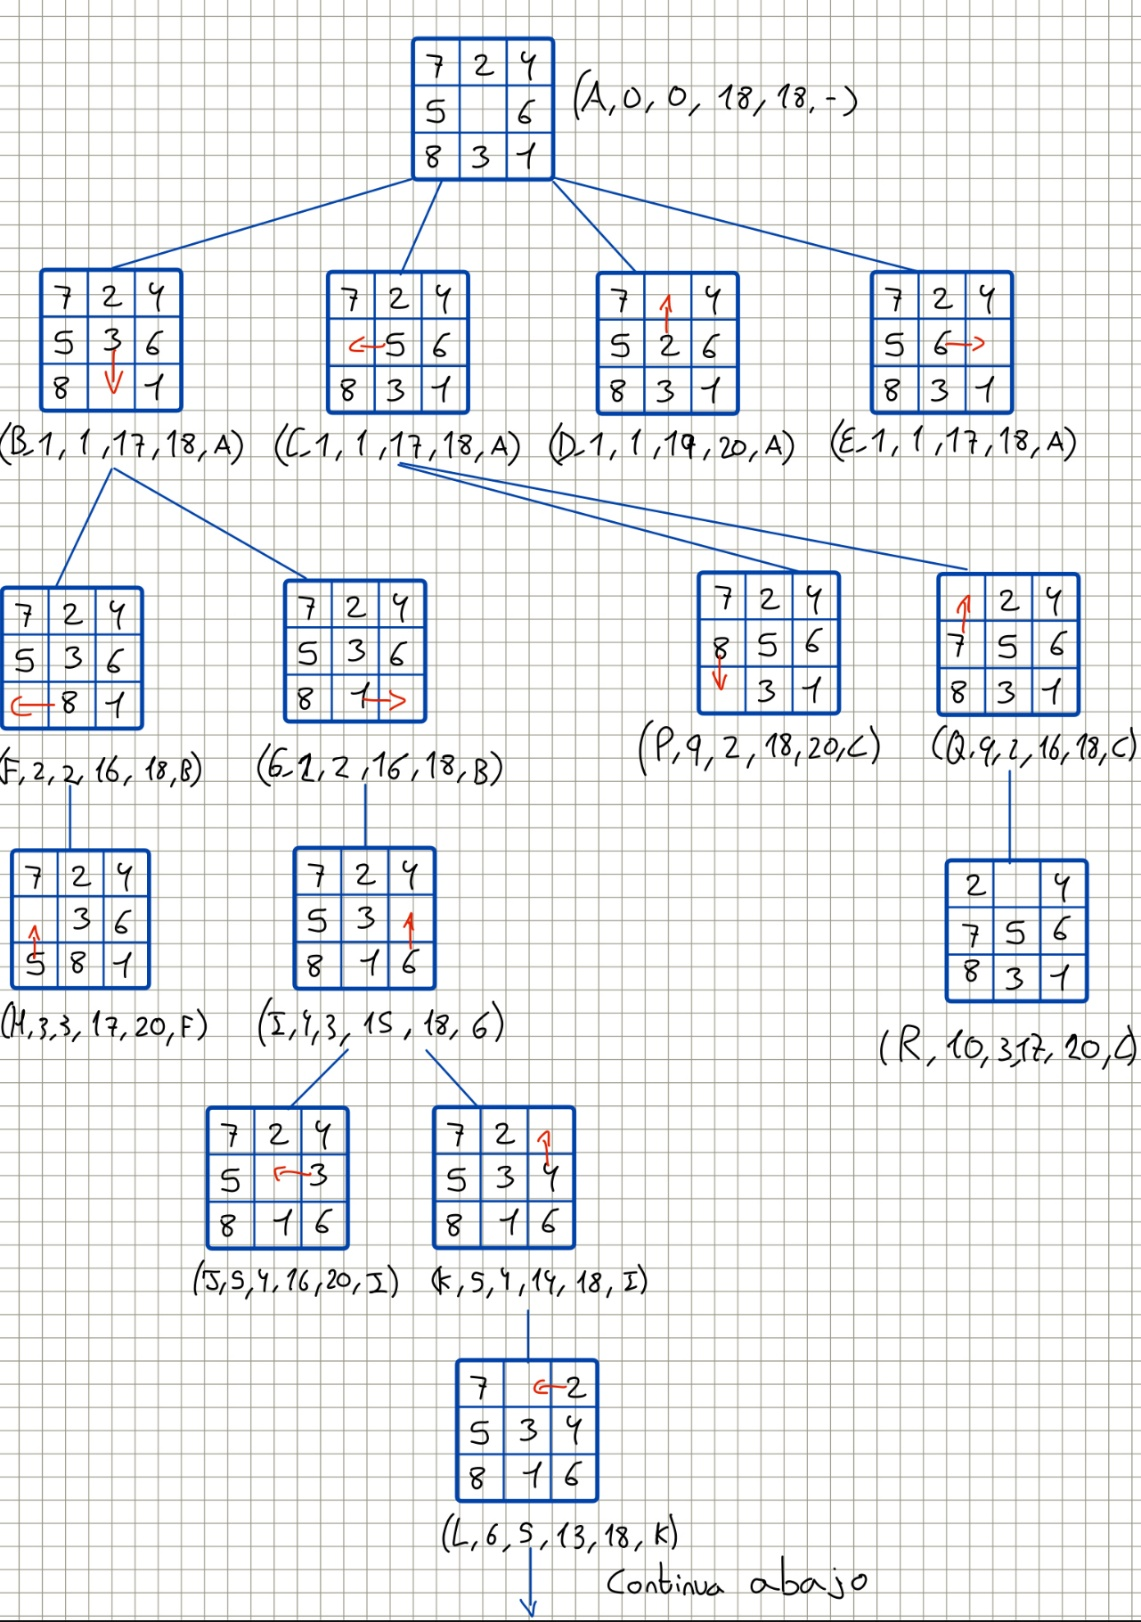 7 2 4
5 6
8 3 1
(A, 0, 0, 18, 18, -)
7 2 4
5 3 6
8 1
(B-1, 1, 17, 18, A)
7 2 4
5 6
8 3 1
(C-1, 1, 17, 18, A)
7 4
5 2 6
8 3 1
(D-1, 1, 19, 20, A)
7 2 4
5 6
8 3 1
(E-1, 1, 17, 18, A)
7 2 4
5 3 6
8 1
(F, 2, 2, 16, 18, B)
7 2 4
5 3 6
8 1
(G-2, 2, 16, 18, B)
7 2 4
8 5 6
3 1
(P, 9, 2, 18, 20, C)
2 4
7 5 6
8 3 1
(Q, 9, 2, 16, 18, C)
7 2 4
3 6
5 8 1
(H, 3, 3, 17, 20, F)
7 2 4
5 3
8 1 6
(I, 4, 3, 15, 18, G)
2 4
7 5 6
8 3 1
(R, 10, 3, 17, 20, C)
7 2 4
5 3
8 1 6
(J, 5, 4, 16, 20, I)
7 2
5 3 4
8 1 6
(K, 5, 4, 14, 18, I)
7 2
5 3 4
8 1 6
(L, 6, 5, 13, 18, K)
Continua abajo